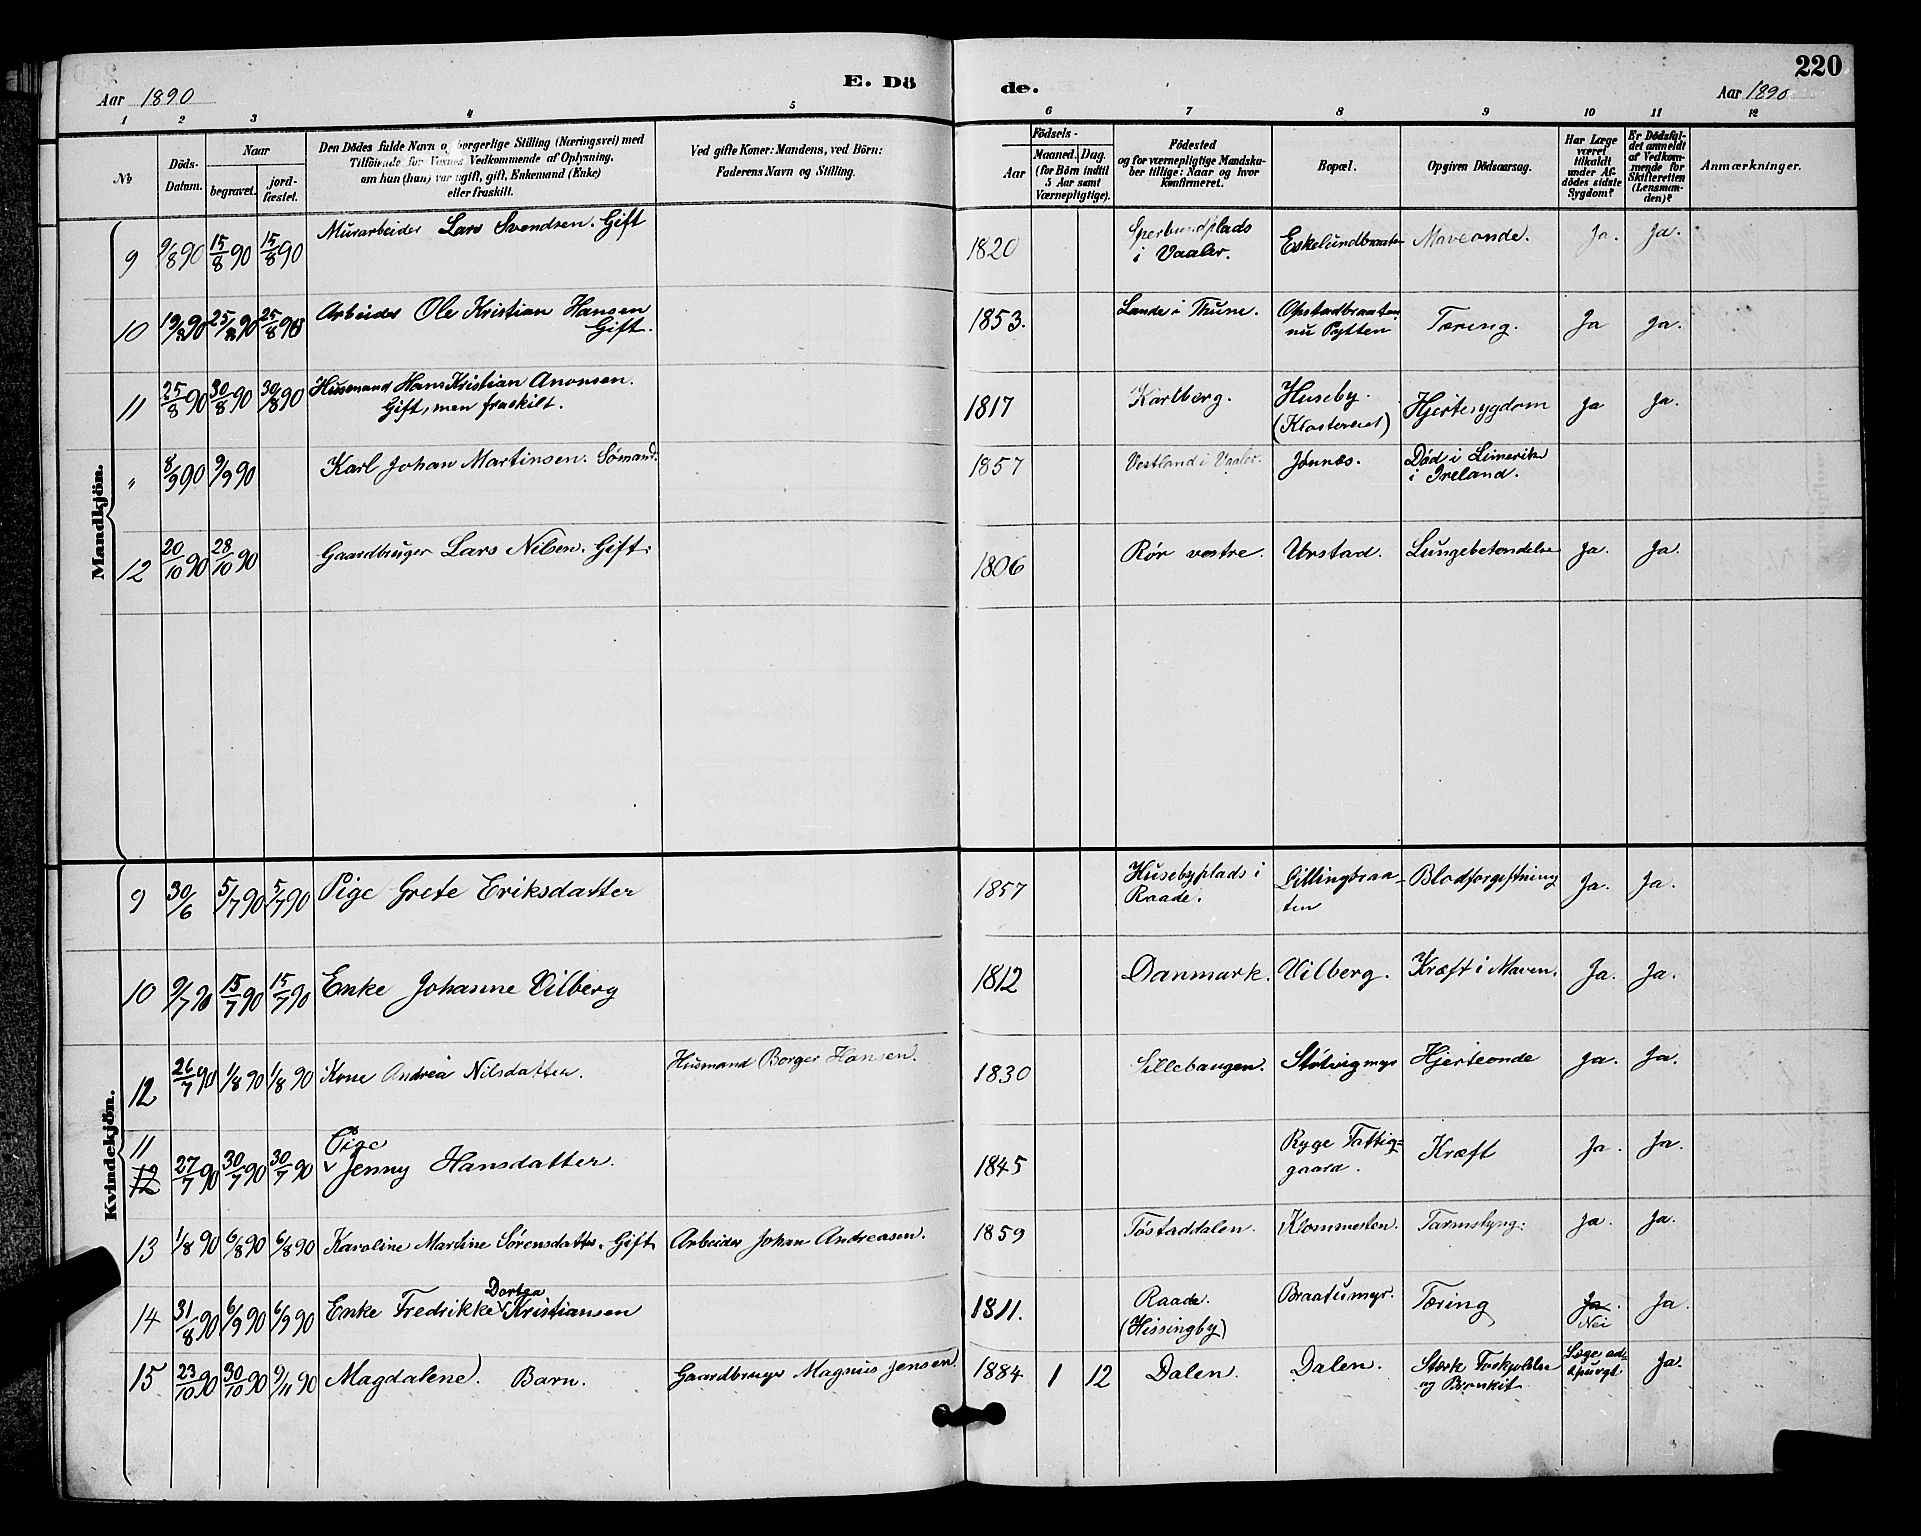 220
Aar 1890
E. Dö
de.
Aar 1890
1 2 3 4 5 6 7 8 9 10 11 12
№
Döds-
Datum.
Naar
begravet.
jord-
fæstet.
Den Dödes fulde Navn og borgerlige Stilling (Næringsvei) med
Tilföiende for Voxnes Vedkommende af Oplysning,
om han (hun) var ugift, gift, Enkemand (Enke)
eller fraskilt.
Ved gifte Koner: Mandens, ved Börn:
Faderens Navn og Stilling.
Födsels-
Aar
Maaned. Dag.
(for Börn indtil
5 Aar samt
Værnepligtige).
Födested
og for værnepligtige Mandska-
ber tillige: Naar og hvor
konfirmeret.
Bopæl.
Opgiven Dödsaarsag.
Har Læge
været
tilkaldt
under Af-
dödes sidste
Sygdom?
Er Dödsfal-
det anmeldt
af Vedkom-
mende for
Skifteretten
(Lensman-
den)?
Anmærkninger.
Mandkjön.
9 9/8 90 15/8 90 15/8 90 Murarbeider Lars Svendsen. Gift 1820 i Vaaler. Eskelundbraaten Maveonde. Ja. Ja.
10 19/8 90 25/8 90 25/8 90 Arbeider Ole Kristian Hansen
Gift. 1853. Lande i Thune. Opstadbraaten
nu Pytten Tæring. Ja Ja.
11 25/8 90 30/8 90 30/8 90 Husmand Hans Kristian Aronsen.
Gift, men fraskilt. 1817 Karlborg. Huseby.
(Klosteret) Hjertesygdom Ja Ja.
" 8/9 90 9/9 90 Karl Johan Martinsen. Sømand. 1857 Vestland i Vaaler. Jonnæs. Død i Limerik
i Ireland.
12 20/10 90 28/10 90 Gaardbruger Lars Nilsen. Gift. 1806 Rør vestre. Urstad. Lungebetændelse Ja. Ja.
Kvindekjön.
9 30/6 5/7 90 5/7 90 Pige Grete Eriksdatter 1857 Husebyplads i
Raade. Lillingbraa-
ten Blodforgiftning Ja. Ja.
10 9/7 90 15/7 90 15/7 90 Enke Johanne Vilberg 1812 Danmark. Vilberg. Kræft i Maven. Ja. Ja.
12 26/7 90 1/8 90 1/8 90 Kone Andrea Nilsdatter. Husmand Borger Hansen. 1830 Sillebaugen. Støtvigmyr Hjerteonde Ja. Ja.
11
12 27/7 90 30/7 90 30/7 90 Pige
Jenny Hansdatter. 1845 Rygge Fattig=
gaard. Kræft Ja. Ja.
13 1/8 90 6/8 90 6/8 90 Karoline Martine Sørensdatter. Gift Arbeider Johan Andreasen. 1859 Tøstaddalen. Klommesten. Ja. Ja.
14 31/8 90 6/9 90 6/9 90 Dortea
Enke Fredrikke Kristiansen 1811. Raade.
(Hissingby) Braatumyr. Tæring Ja.
Nei Ja.
15 23/10 90 30/10 90 9/11 90 Magdalene. Barn. Gaardbruger Magnus Jensen 1884 1 12 Dalen. Dalen. Stærk Forkjølelse
og Bronkit Læge ad-
spurgt Ja.